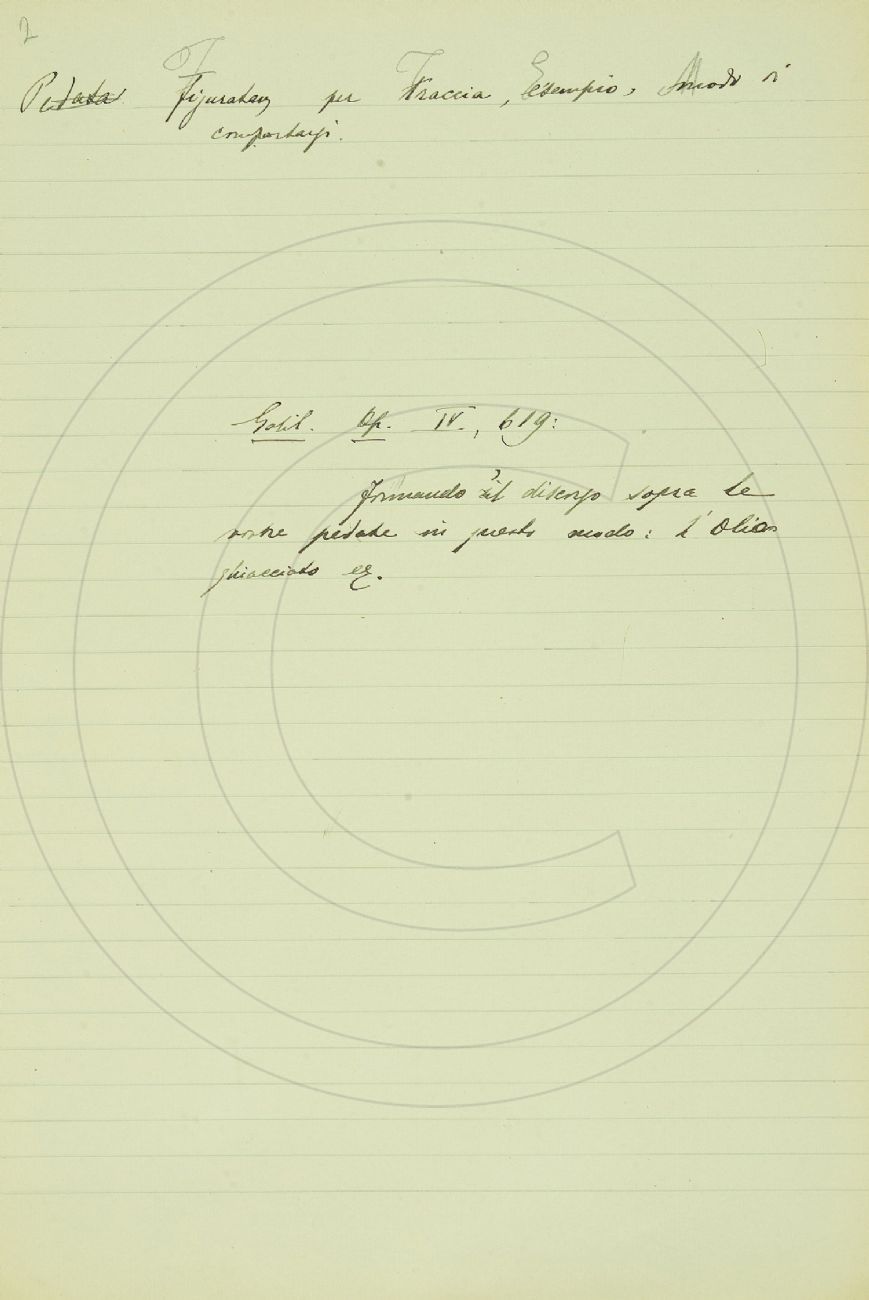 2
Pedata Figuratam. per Traccia, Esempio, Modo di
comportarsi.
Galil. Op. IV., 619:
formando il discorso sopra le
vostre pedate in questo modo: l'Olio
ghiacciato ec.